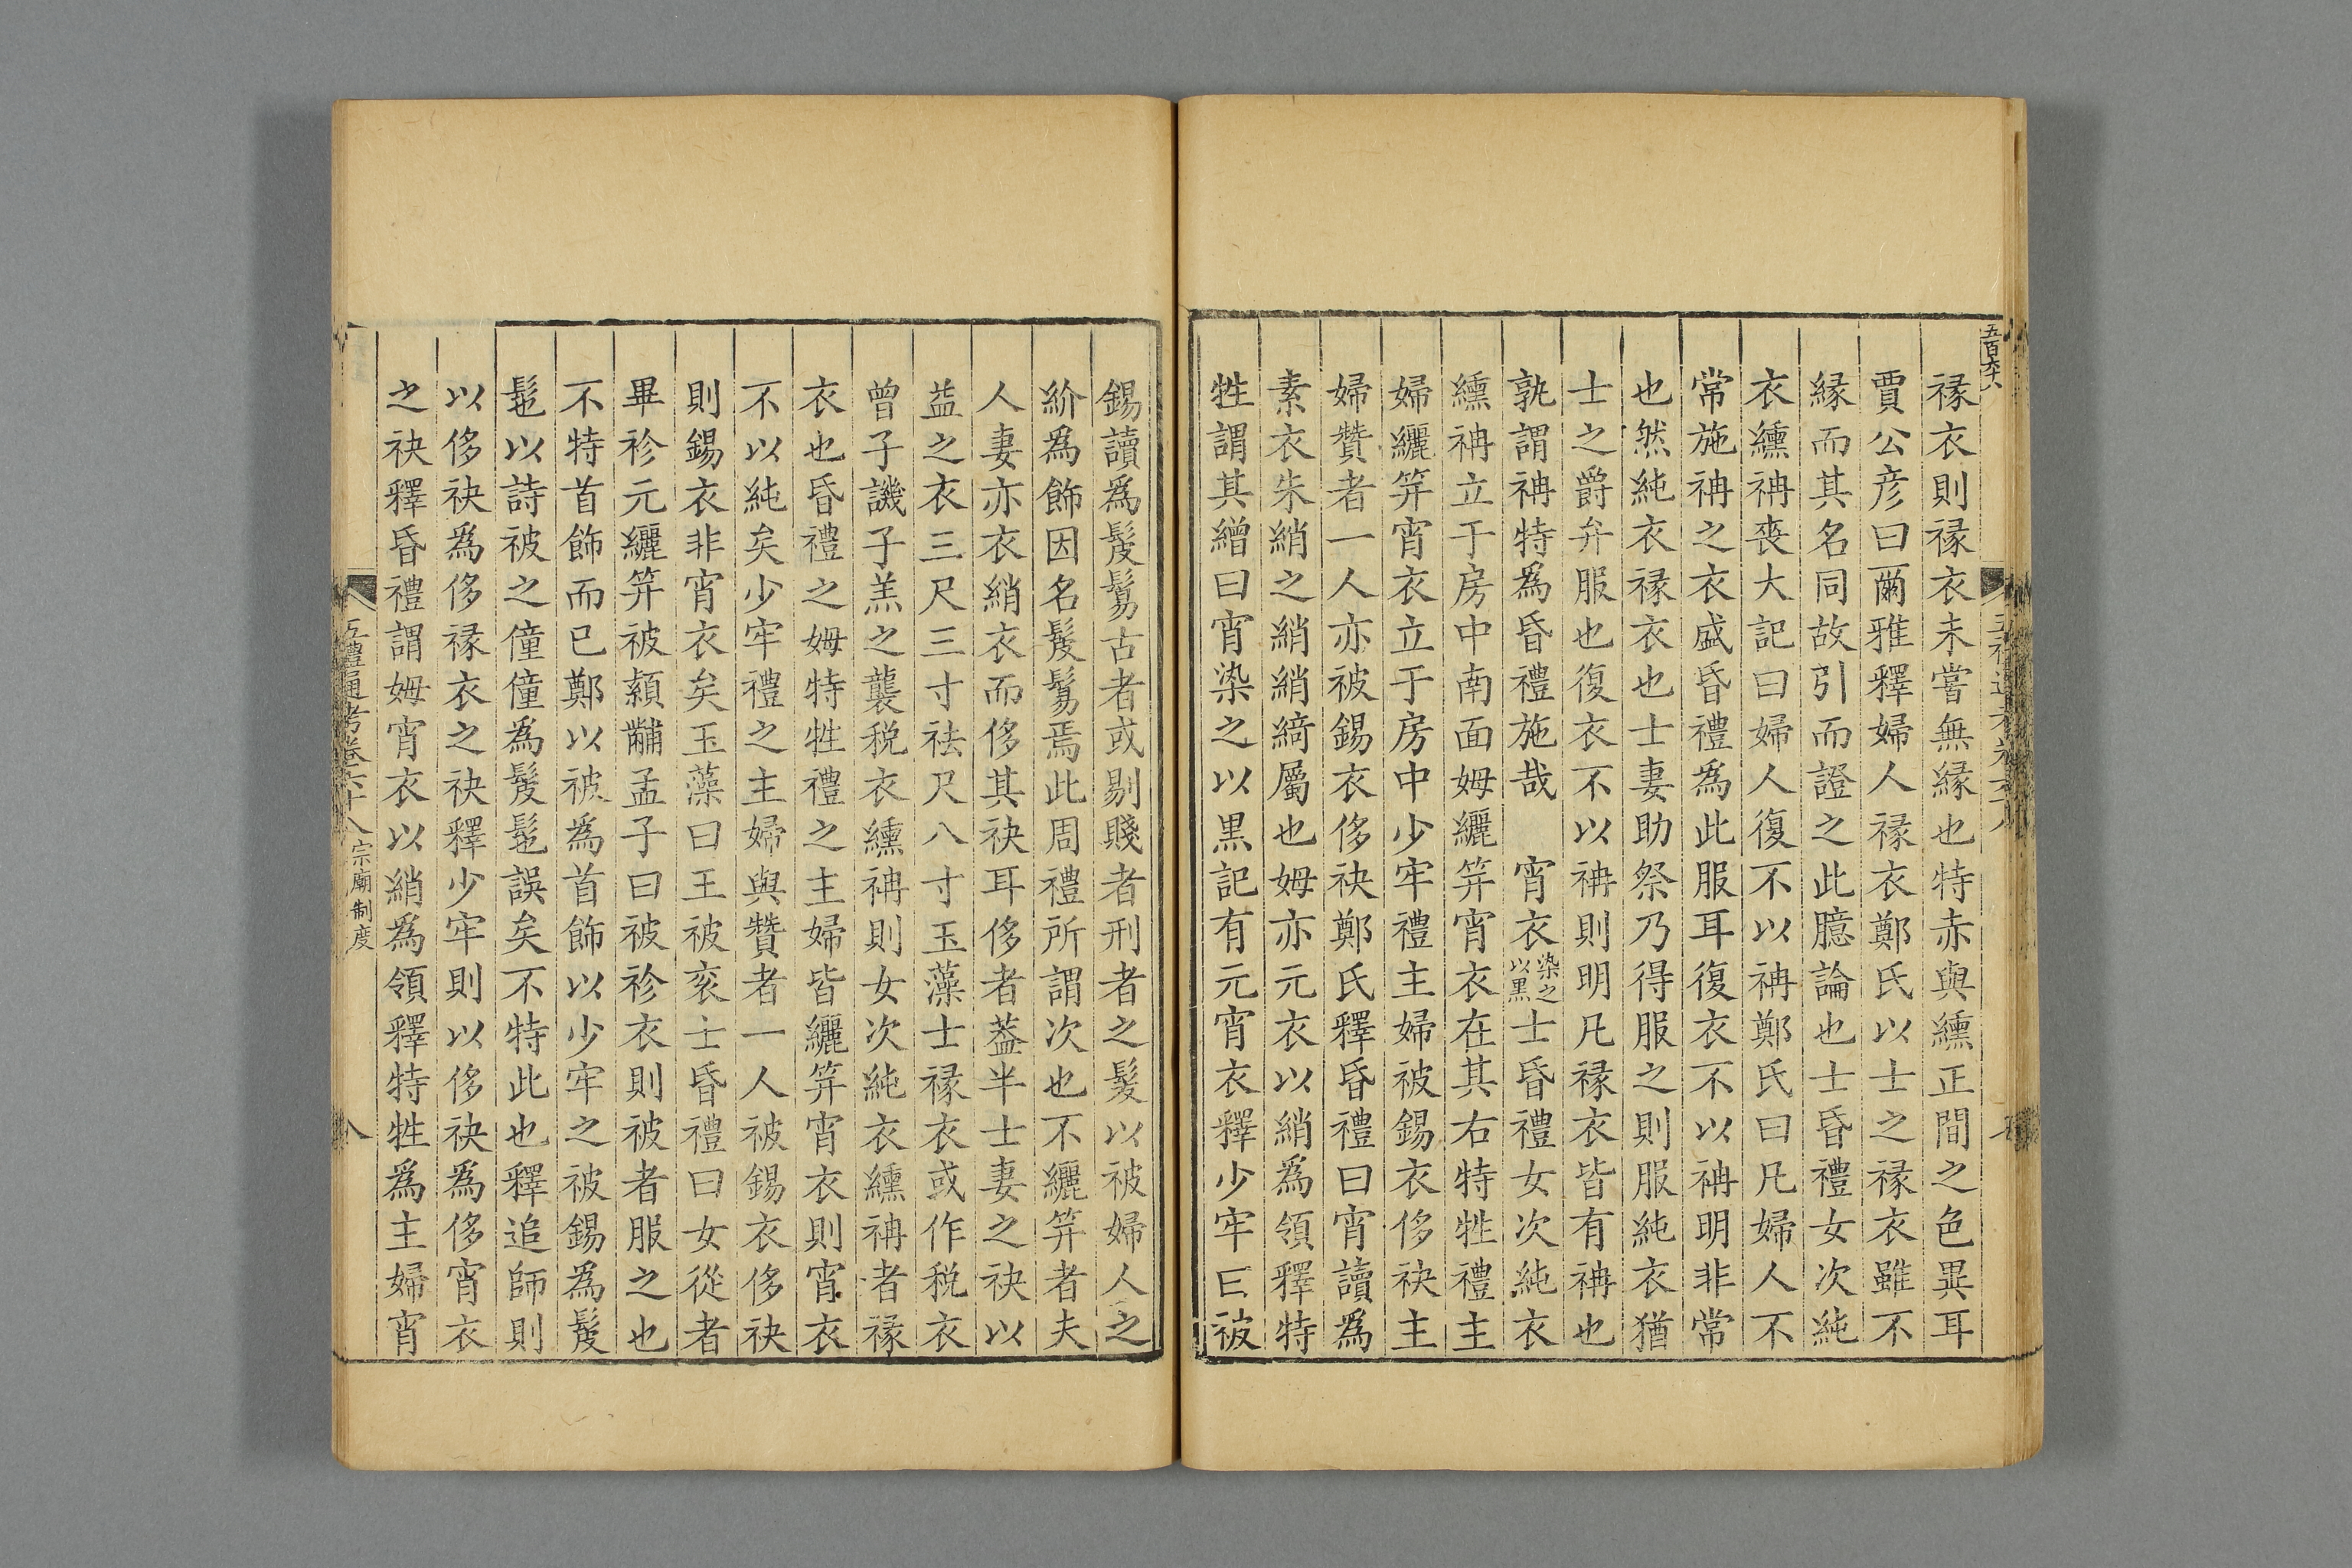 五百六十八
褖衣則褖衣未嘗無緣也特赤與纁正間之色異耳
賈公彦曰爾雅釋婦人褖衣鄭氏以士之褖衣雖不
緣而其名同故引而證之此臆論也士昏禮女次純
衣纁袡喪大記曰婦人復不以袡鄭氏曰凡婦人不
常施袡之衣盛昏禮為此服耳復衣不以袡明非常
也然純衣褖衣也士妻助祭乃得服之則服純衣猶
士之爵弁服也復衣不以袡則明凡褖衣皆有袡也
孰謂袡特為昏禮施哉　宵衣染之以黑士昏禮女次純衣
纁袡立于房中南面姆纚笄宵衣在其右特牲禮主
婦纚笄宵衣立于房中少牢禮主婦被錫衣侈袂主
婦贊者一人亦被錫衣侈袂鄭氏釋昏禮曰宵讀為
素衣朱綃之綃綃綺屬也姆亦元衣以綃為領釋特
牲謂其繒曰宵染之以黒記有元宵衣釋少牢曰被
錫讀為髲鬄古者或剔賤者刑者之髮以被婦人之
紒為飾因名髲鬄焉此周禮所謂次也不纚笄者夫
人妻亦衣綃衣而侈其袂耳侈者葢半士妻之袂以
益之衣三尺三寸袪尺八寸玉藻士褖衣或作稅衣
曾子譏子羔之襲稅衣纁袡則女次純衣纁袡者褖
衣也昏禮之姆特牲禮之主婦皆纚笄宵衣則宵衣
不以純矣少牢禮之主婦與贊者一人被錫衣侈袂
則錫衣非宵衣矣玉藻曰王被衮士昏禮曰女從者
畢袗元纚笄被熲黼孟子曰被袗衣則被者服之也
不特首飾而已鄭以被為首飾以少牢之被錫為髲
髢以詩被之僮僮為髲髢誤矣不特此也釋追師則
以侈袂為侈褖衣之袂釋少牢則以侈袂為侈宵衣
之袂釋昏禮謂姆宵衣以綃為領釋特牲為主婦宵
五禮通考卷六十八 宗廟制度 八